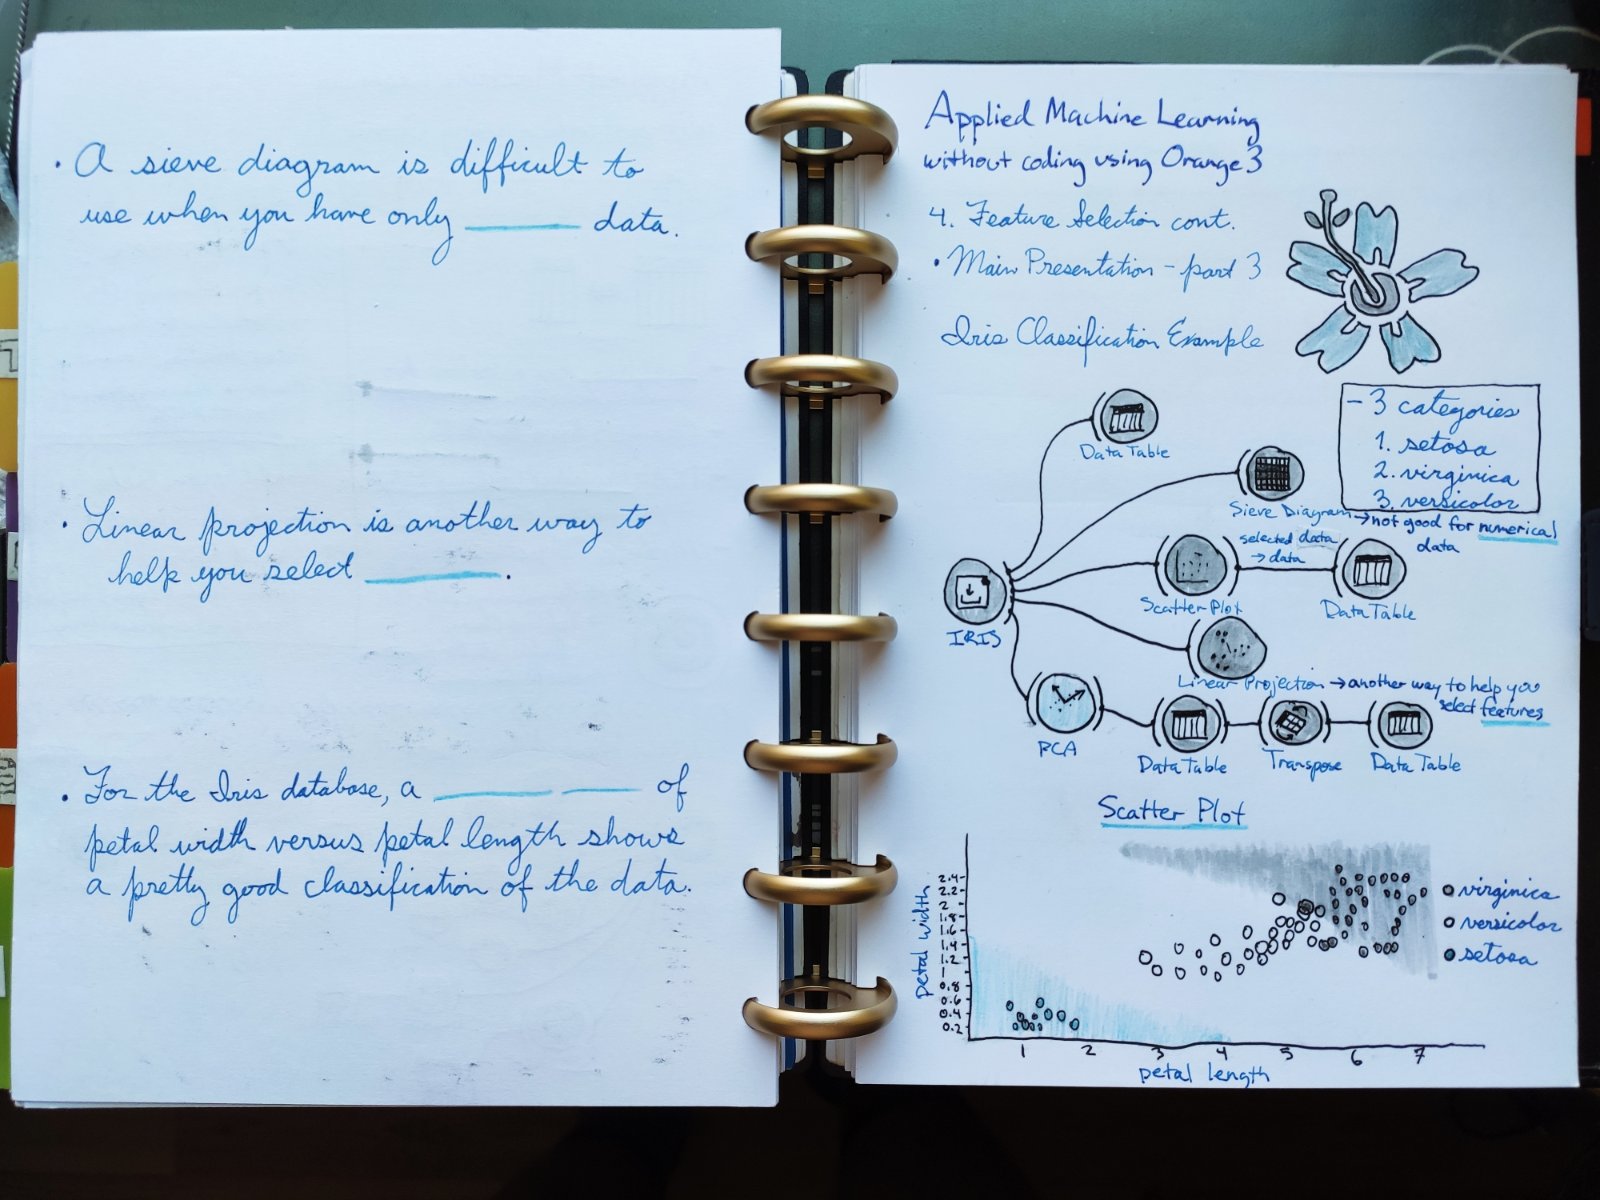 • A sieve diagram is difficult to
use when you have only ______ data.
• Linear projection is another way to
help you select ______.
• For the Iris database, a ______ ____ of
petal width versus petal length shows
a pretty good classification of the data.
Applied Machine Learning
without coding using Orange 3
4. Feature Selection cont.
• Main Presentation - part 3
Iris Classification Example
- 3 categories
1. setosa
2. virginica
3. versicolor
Data Table
Sieve Diagram → not good for numerical
data
selected data
→ data
Scatter Plot
Data Table
IRIS
Linear Projection → another way to help you
select features
PCA
Data Table
Transpose
Data Table
Scatter Plot
petal width
2.4
2.2
2
1.8
1.6
1.4
1.2
1
0.8
0.6
0.4
0.2
virginica
versicolor
setosa
1 2 3 4 5 6 7
petal length